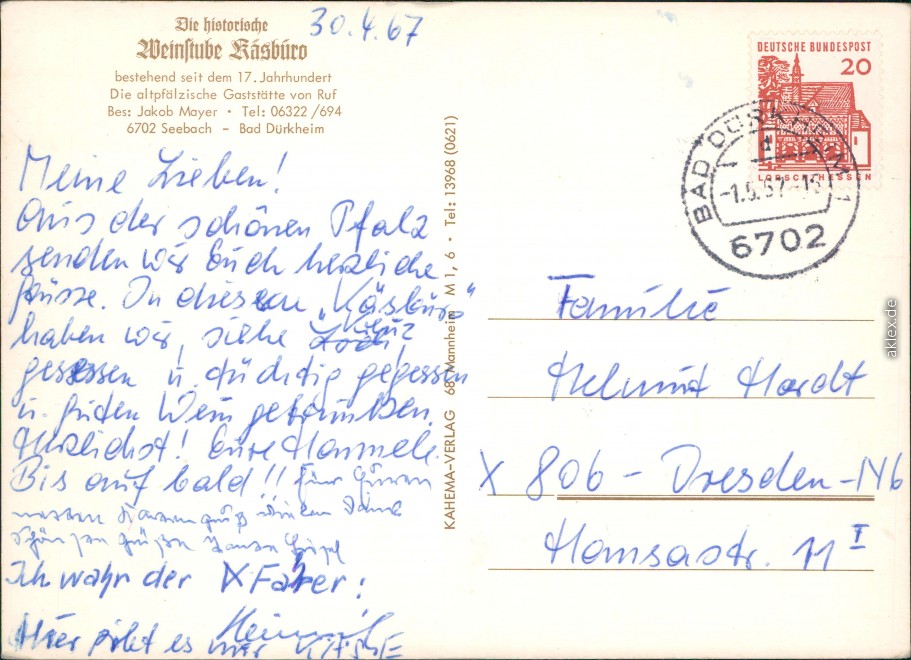 Die historische
Weinstube Käsbüro
bestehend seit dem 17. Jahrhundert
Die altpfälzische Gaststätte von Ruf
Bes: Jakob Mayer • Tel: 06322/694
6702 Seebach – Bad Dürkheim
30.4.67
Meine Lieben!
Aus der schönen Pfalz
senden wir Euch herzliche
Grüsse. In diesem „Käsbüro"
haben wir, siehe Kreuz
gesessen u. tüchtig gegessen
u. guten Wein getrunken.
Herzlichst! Eure Hannele.
Bis auf bald!! Für Euren
netten Kartengruß vielen Dank
schönsten Grüße
Ich wahr der Fahrer!
Hier gibt es nur KÄSE
Heinrich
KAHEMA-VERLAG 68 Mannheim M 1, 6 • Tel: 13968 (0621)
DEUTSCHE BUNDESPOST
20
LORSCH/HESSEN
BAD DÜRKHEIM 1
d
-1.5.67-16
6702
Familie
Helmut Hardt
X 806 – Dresden-N6
Hansastr. 11 I
akpool.de